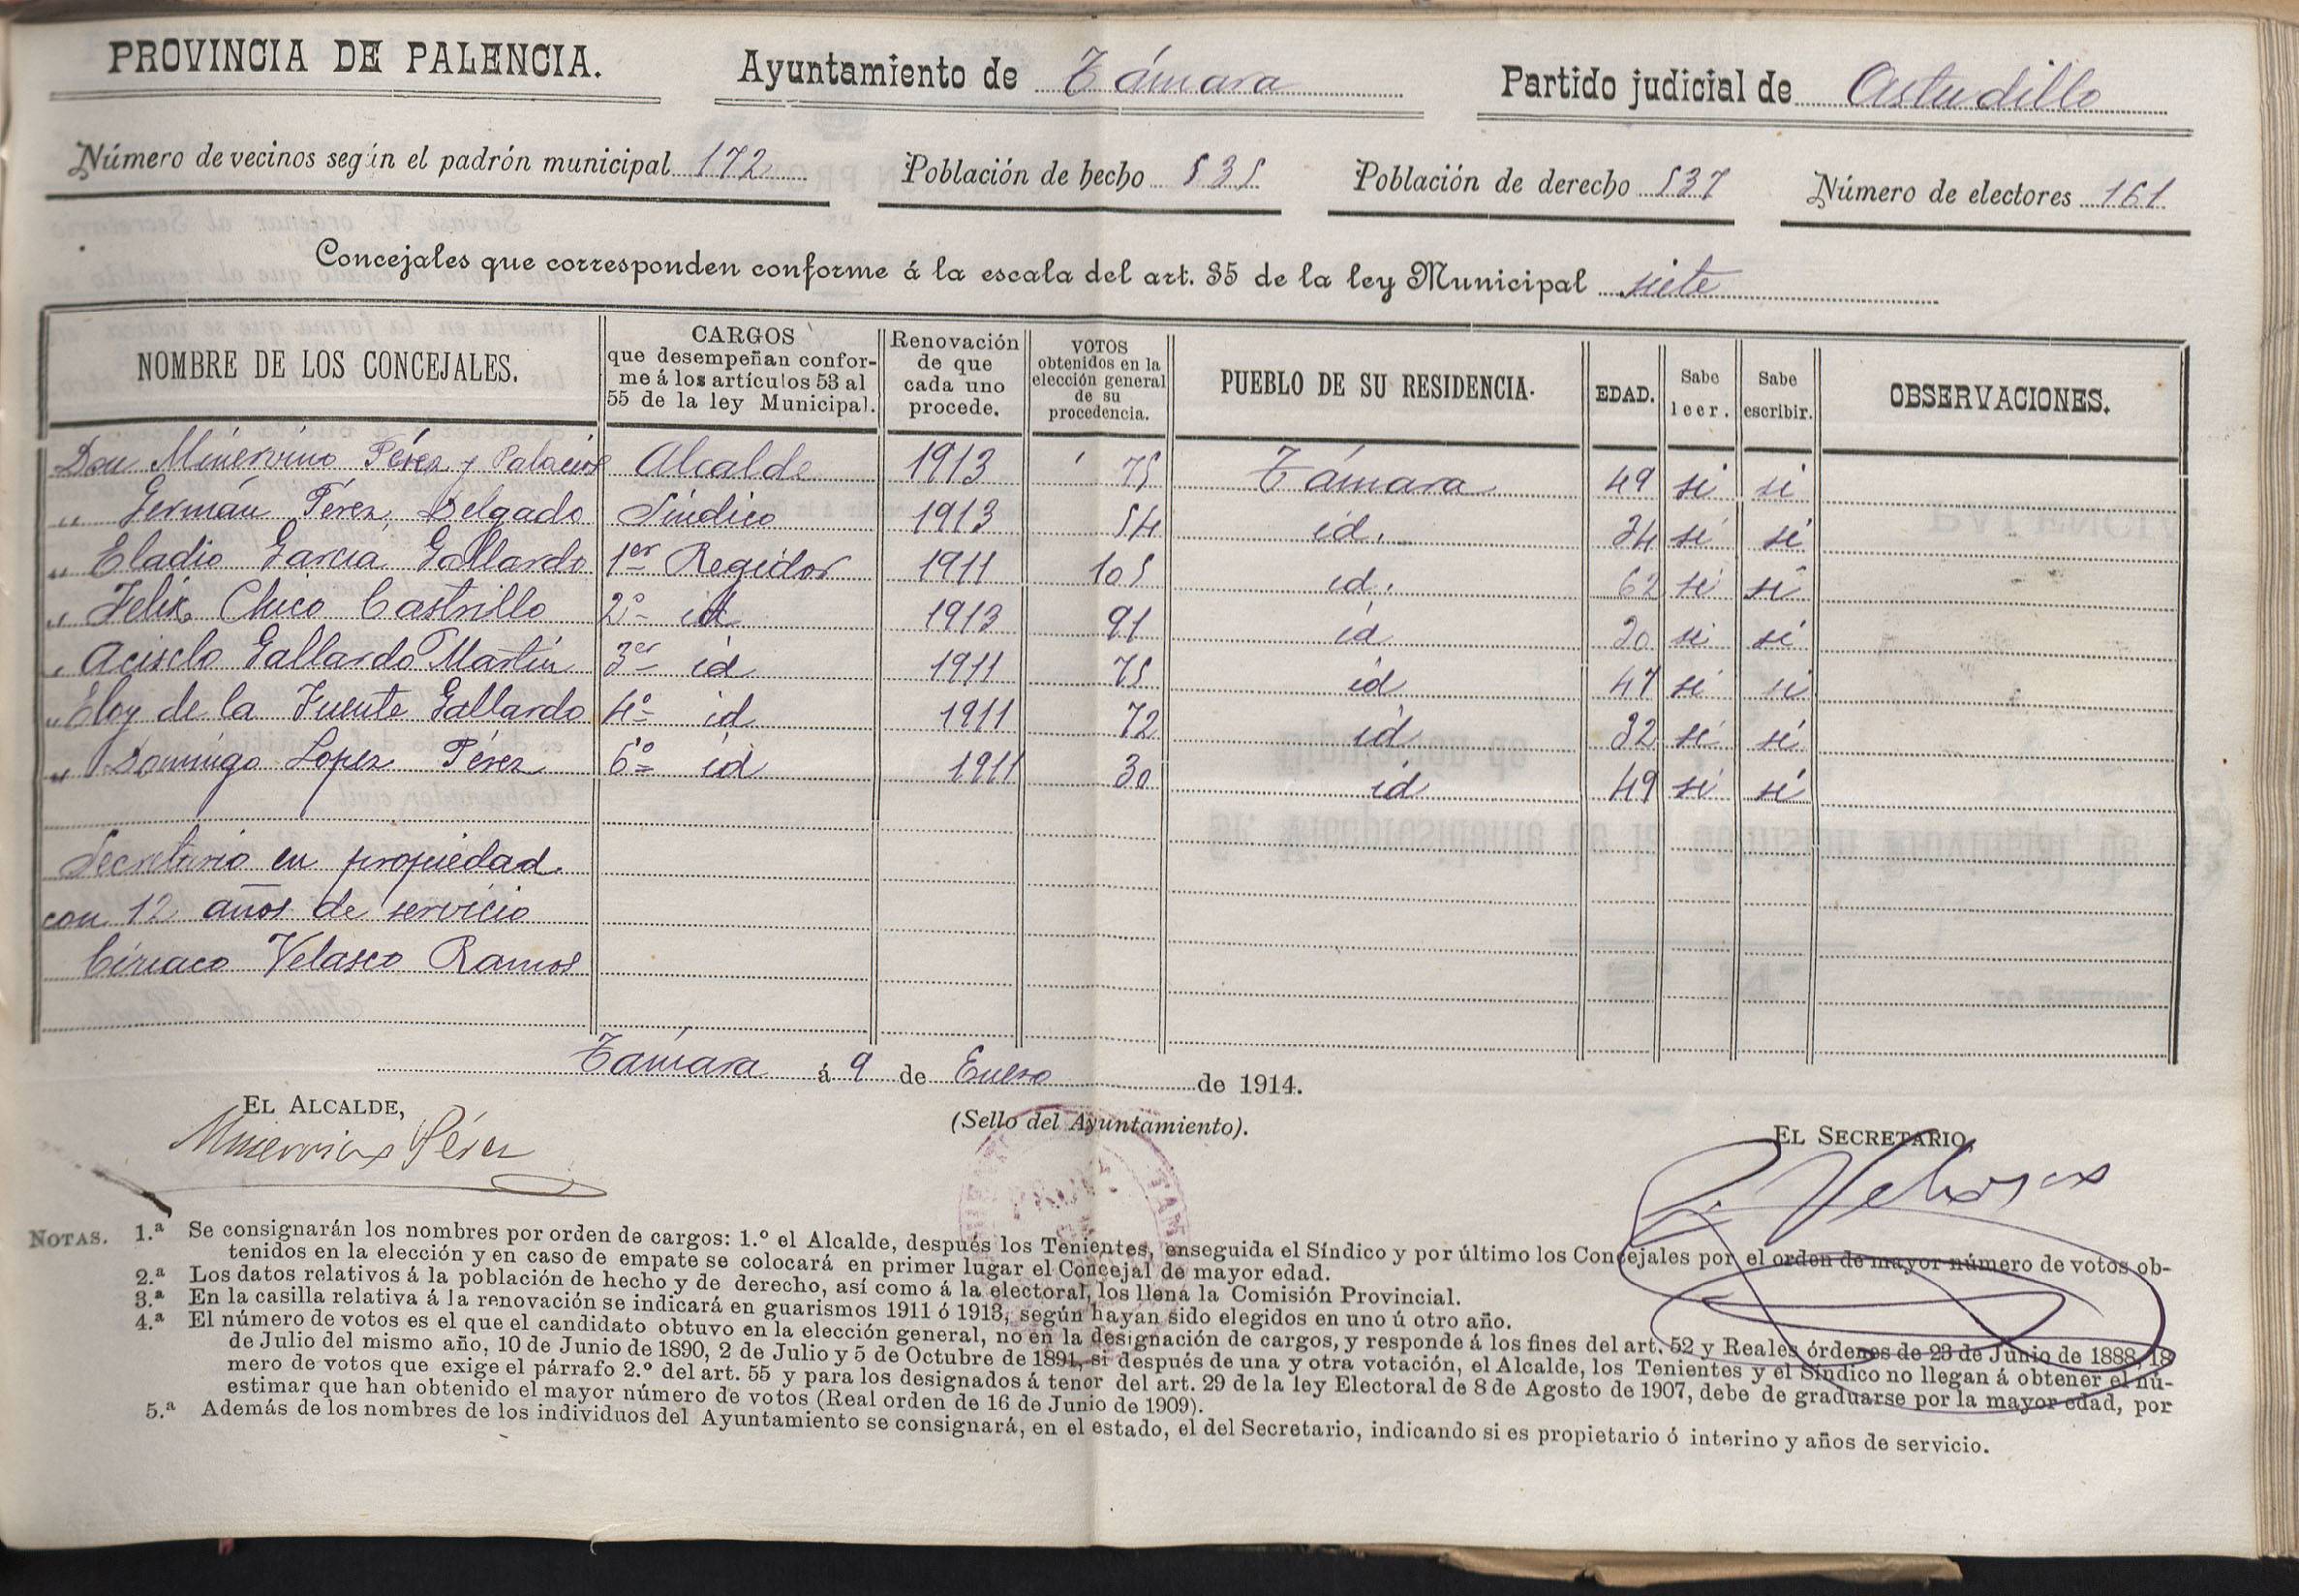 PROVINCIA DE PALENCIA. Ayuntamiento de Támara Partido judicial de Astudillo
Número de vecinos según el padrón municipal 172 Población de hecho 535 Población de derecho 537 Número de electores 161
Concejales que corresponden conforme á la escala del art. 35 de la ley Municipal siete
NOMBRE DE LOS CONCEJALES. CARGOS que desempeñan conforme á los artículos 53 al 55 de la ley Municipal. Renovación de que cada uno procede. VOTOS obtenidos en la elección general de su procedencia. PUEBLO DE SU RESIDENCIA. EDAD. Sabe leer. Sabe escribir. OBSERVACIONES.
Don Minervino Pérez y Palacios Alcalde 1913 75 Támara 49 si si
" Germán Pérez Delgado Síndico 1913 54 id. 34 si si
" Eladio García Gallardo 1er Regidor 1911 105 id. 62 si si
" Felix Chico Castrillo 2º id 1913 91 id 30 si si
" Acisclo Gallardo Martín 3er id 1911 75 id 47 si si
" Eloy de la Fuente Gallardo 4º id 1911 72 id 32 si si
" Domingo Lopez Pérez 5º id 1911 30 id 49 si si
Secretario en propiedad.
con 12 años de servicio
Ciriaco Velasco Ramos
Támara á 9 de Enero de 1914.
EL ALCALDE,
(Sello del Ayuntamiento).
EL SECRETARIO,
Minervino Pérez
C. Velasco
NOTAS. 1.ª Se consignarán los nombres por orden de cargos: 1.º el Alcalde, después los Tenientes, enseguida el Síndico y por último los Concejales por el orden de mayor número de votos ob-
tenidos en la elección y en caso de empate se colocará en primer lugar el Concejal de mayor edad.
2.ª Los datos relativos á la población de hecho y de derecho, así como á la electoral, los llena la Comisión Provincial.
3.ª En la casilla relativa á la renovación se indicará en guarismos 1911 ó 1913, según hayan sido elegidos en uno ú otro año.
4.ª El número de votos es el que el candidato obtuvo en la elección general, no en la designación de cargos, y responde á los fines del art. 52 y Reales órdenes de 23 de Junio de 1888, 18
de Julio del mismo año, 10 de Junio de 1890, 2 de Julio y 5 de Octubre de 1891, si después de una y otra votación, el Alcalde, los Tenientes y el Síndico no llegan á obtener el nú-
mero de votos que exige el párrafo 2.º del art. 55 y para los designados á tenor del art. 29 de la ley Electoral de 8 de Agosto de 1907, debe de graduarse por la mayor edad, por
estimar que han obtenido el mayor número de votos (Real orden de 16 de Junio de 1909).
5.ª Además de los nombres de los individuos del Ayuntamiento se consignará, en el estado, el del Secretario, indicando si es propietario ó interino y años de servicio.